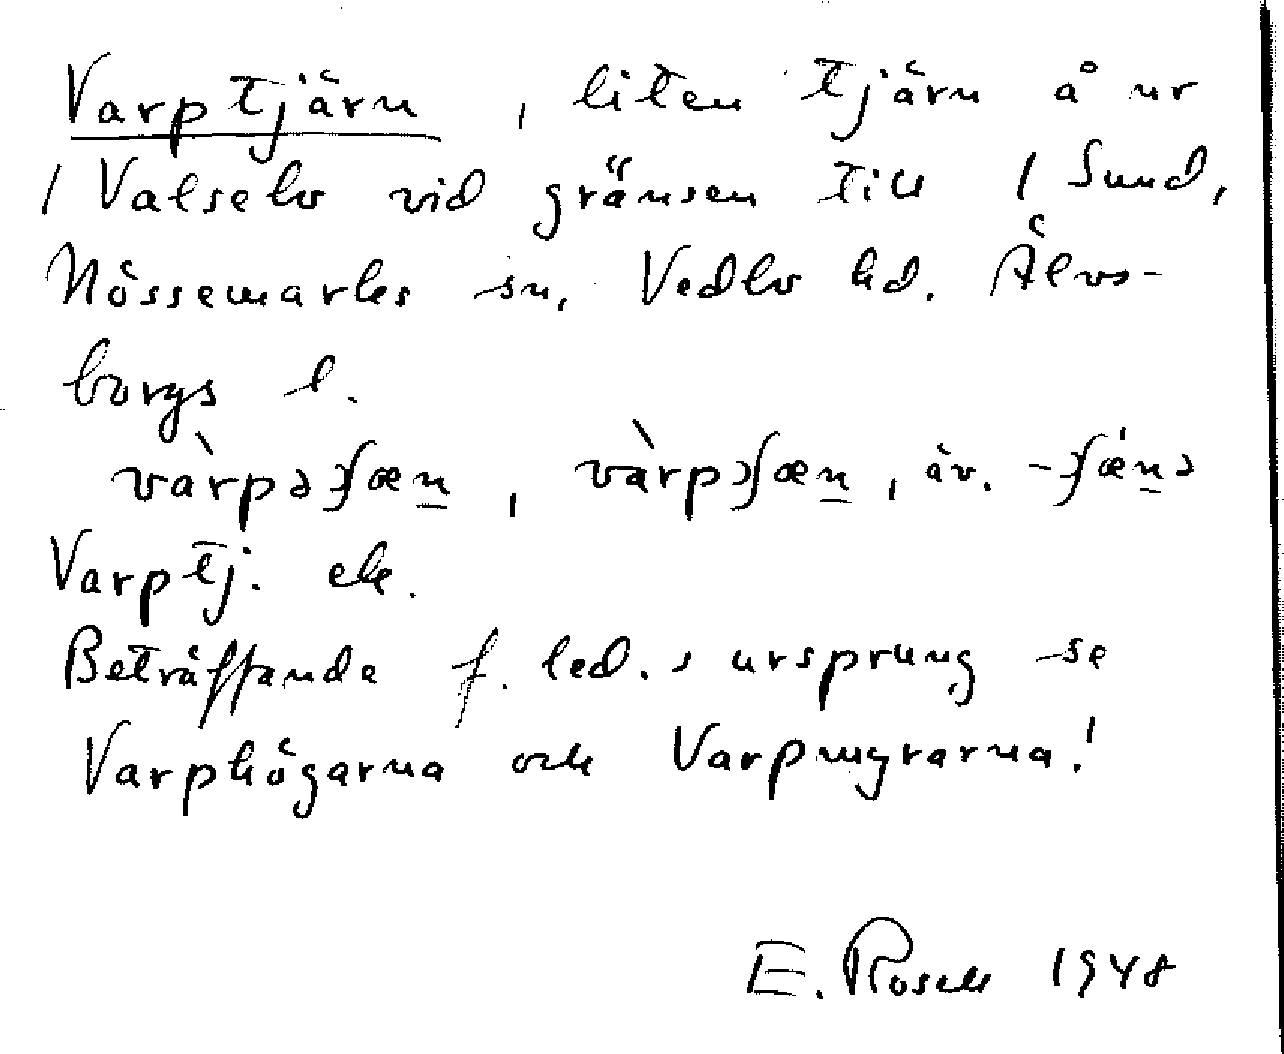 Varptjärn, liten tjärn å ur
/ Valsebo vid gränsen till / Sund,
Nössemarks sn, Vedbo hd. Älvs-
borgs l.
vàrpəʃæn, vàrpʃæn, äv. -ʃǽnə
Varptj. ek.
Beträffande f. led.s ursprung se
Varphögarna och Varpmyrarna!
E. Rosell 1948